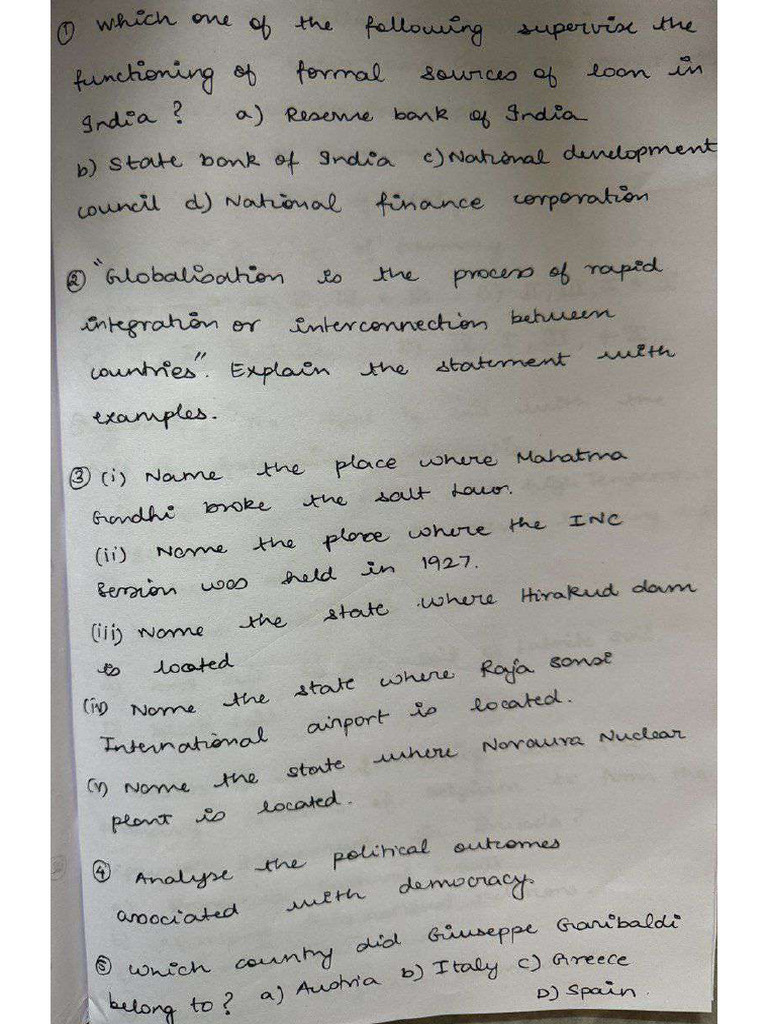 ① Which one of the following supervise the
functioning of formal sources of loan in
India ? a) Reserve bank of India
b) State bank of India c) National development
council d) National finance corporation
② "Globalisation is the process of rapid
integration or interconnection between
countries". Explain the statement with
examples.
③ (i) Name the place where Mahatma
Gandhi broke the salt Law.
(ii) Name the place where the INC
Session was held in 1927.
(iii) Name the state where Hirakud dam
is located
(iv) Name the state where Raja Sansi
International airport is located.
(v) Name the state where Naraura Nuclear
plant is located.
④ Analyse the political outcomes
associated with democracy.
⑤ Which country did Giuseppe Garibaldi
belong to ? a) Austria b) Italy c) Greece
D) Spain.